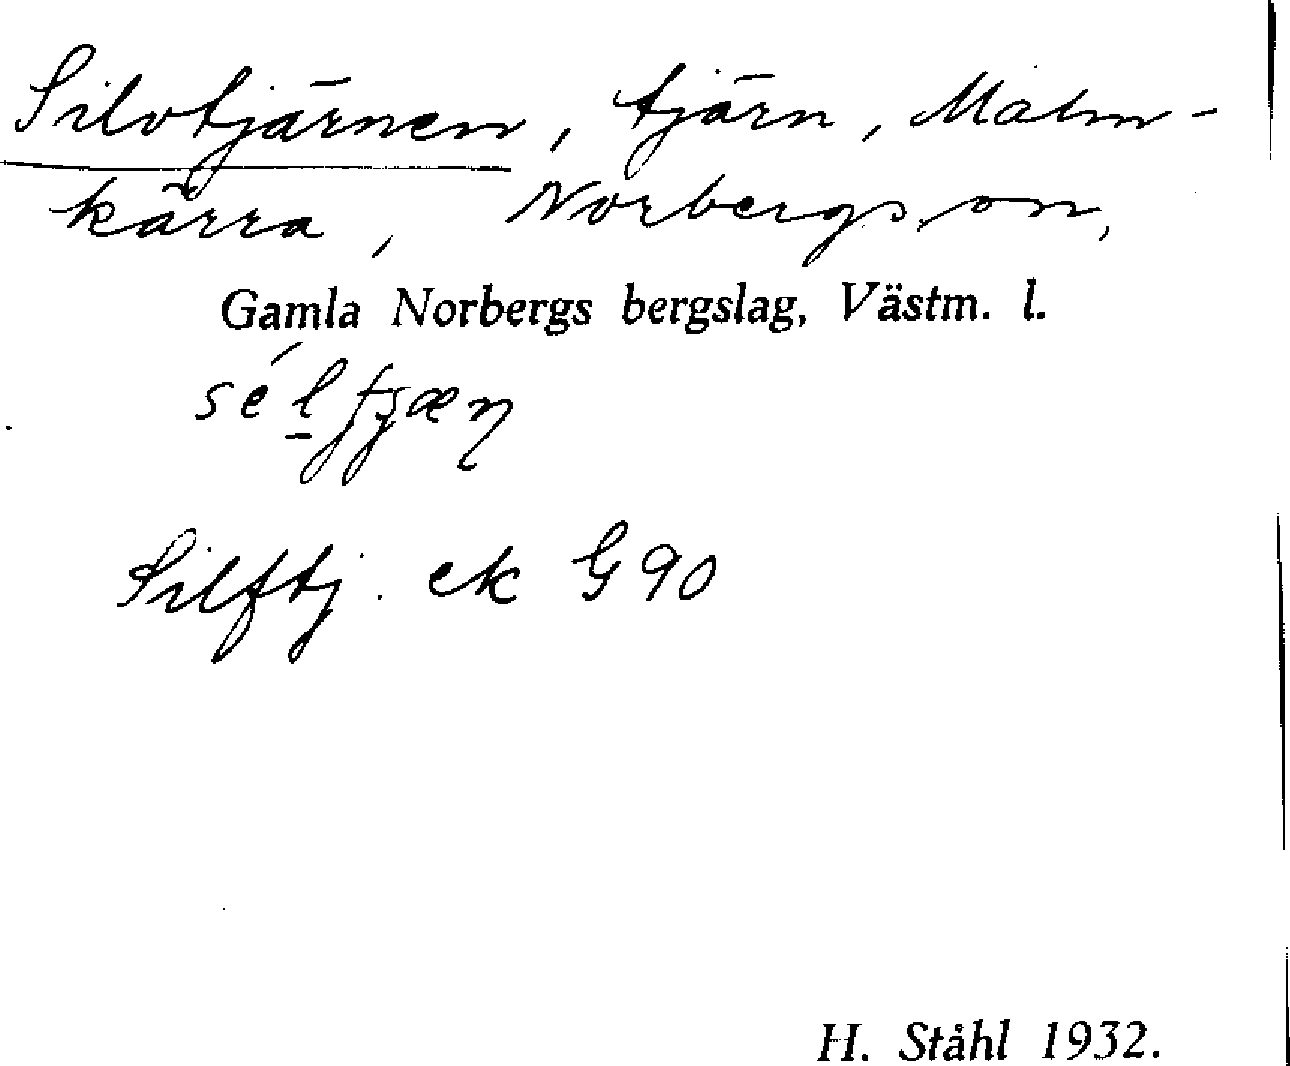 Silvtjärnen, tjärn, Malm-
kärra, Norbergs sn,
Gamla Norbergs bergslag, Västm. l.
Silftj. ek G 90
H. Ståhl 1932.